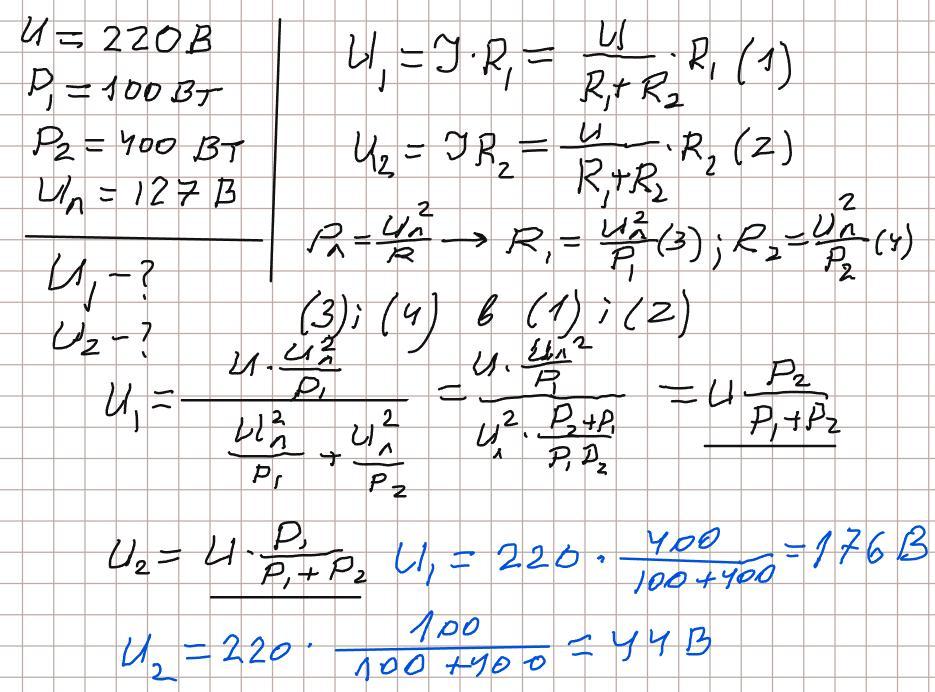 U = 220 В
P₁ = 100 Вт
P₂ = 400 Вт
Uₙ = 127 В
U₁ - ?
U₂ - ?
U₁ = J · R₁ = U/(R₁ + R₂) · R₁ (1)
U₂ = JR₂ = U/(R₁ + R₂) · R₂ (2)
Pₙ = Uₙ²/R → R₁ = Uₙ²/P₁ (3); R₂ = Uₙ²/P₂ (4)
(3); (4) в (1); (2)
U₁ = (U · Uₙ²/P₁)/(Uₙ²/P₁ + Uₙ²/P₂) = (U · Uₙ²/P₁)/(Uₙ² · (P₂ + P₁)/(P₁P₂)) = U P₂/(P₁ + P₂)
U₂ = U · P₁/(P₁ + P₂) U₁ = 220 · 400/(100 + 400) = 176 В
U₂ = 220 · 100/(100 + 400) = 44 В